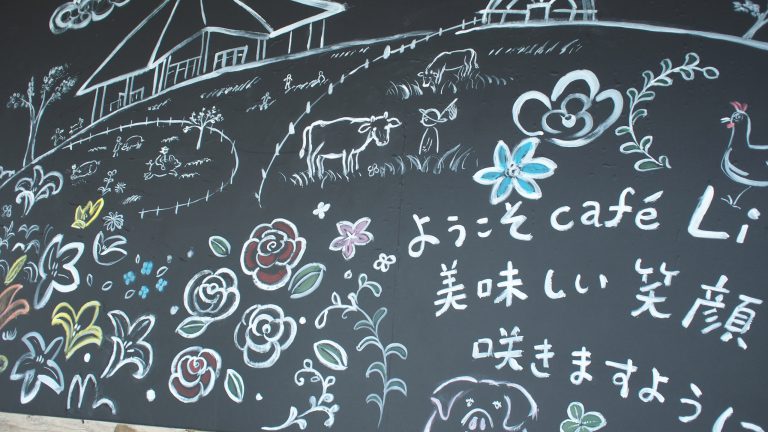 ようこそ café Li
美味しい 笑顔
咲きますように
Li